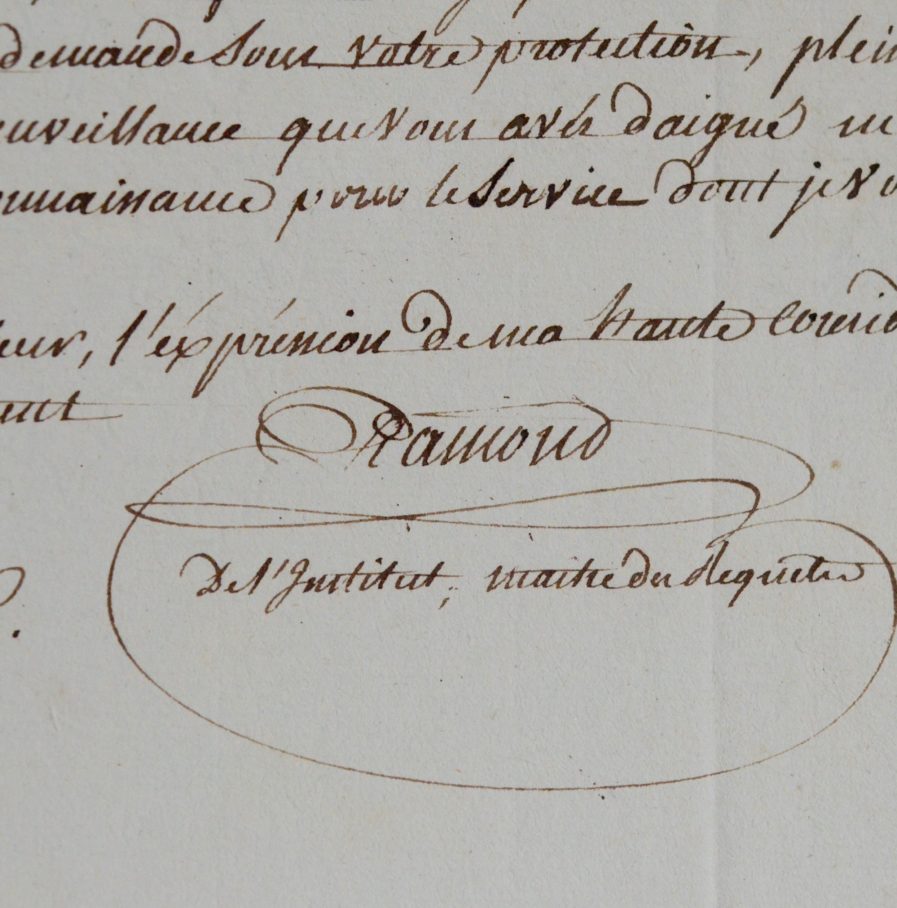 demande sous votre protection, plein
enveillance que vous avés daigné m
nnaissance pour le service dont je vo
eur, l'éxpréssion de ma haute consid
ent
Ramond
De l'Institut, maitre des Requetes